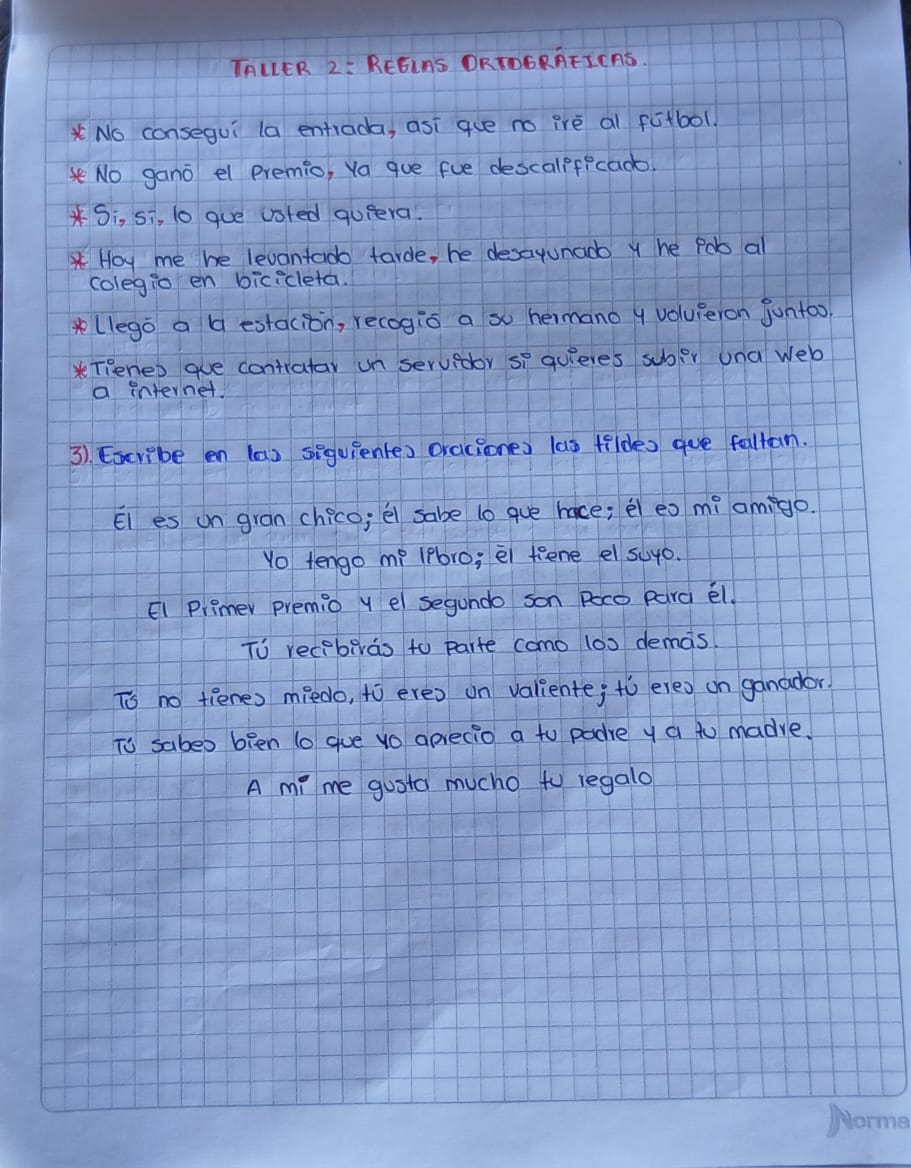 TALLER 2: REGLAS ORTOGRÁFICAS.
* No conseguí la entrada, así que no iré al fútbol.
* No ganó el premio, ya que fue descalificado.
* Si, si, lo que usted quiera.
* Hoy me he levantado tarde, he desayunado y he ido al
colegio en bicicleta.
* Llegó a la estación, recogió a su hermano y volvieron juntos.
* Tienes que contratar un servidor si quieres subir una web
a internet.
3). Escribe en las siguientes oraciones las tildes que faltan.
Él es un gran chico; él sabe lo que hace; él es mi amigo.
Yo tengo mi libro; él tiene el suyo.
El primer premio y el segundo son poco para él.
Tú recibirás tu parte como los demás.
Tú no tienes miedo, tú eres un valiente; tú eres un ganador.
Tú sabes bien lo que yo aprecio a tu padre y a tu madre.
A mí me gusta mucho tu regalo
Norma